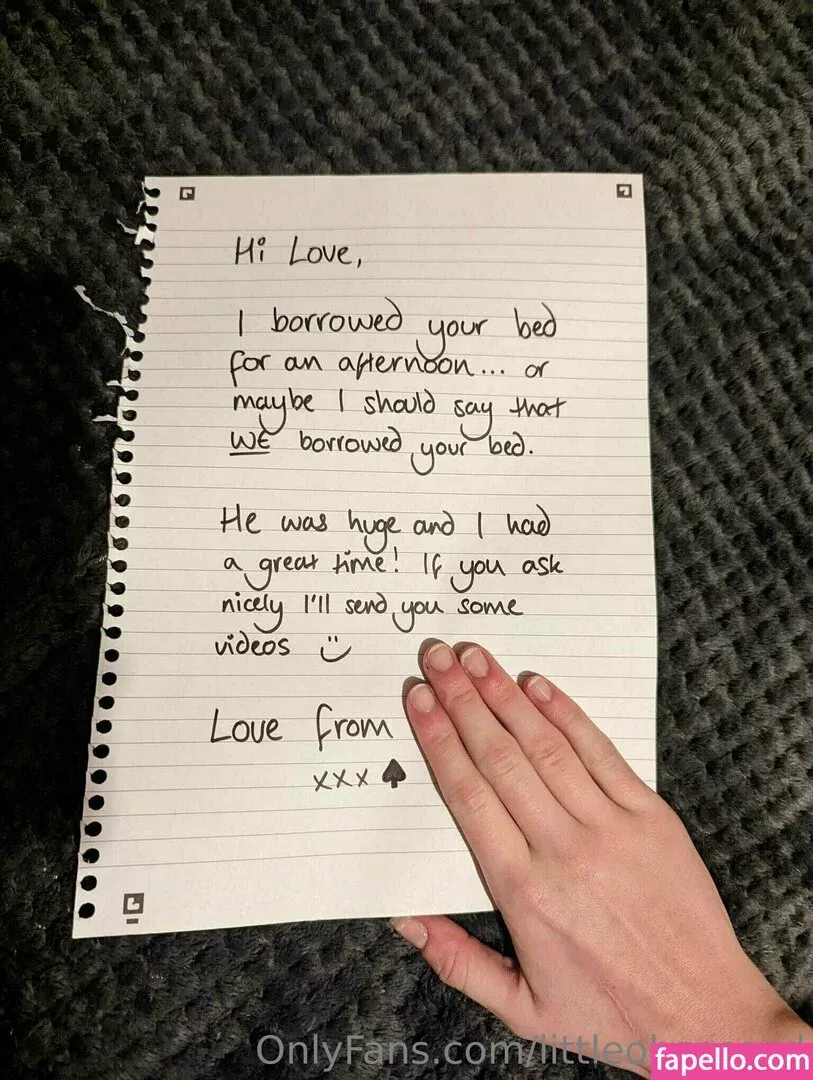 Hi Love,
I borrowed your bed
for an afternoon... or
maybe I should say that
WE borrowed your bed.
He was huge and I had
a great time! If you ask
nicely I'll send you some
videos
Love from
xxx ♠
fapello.com